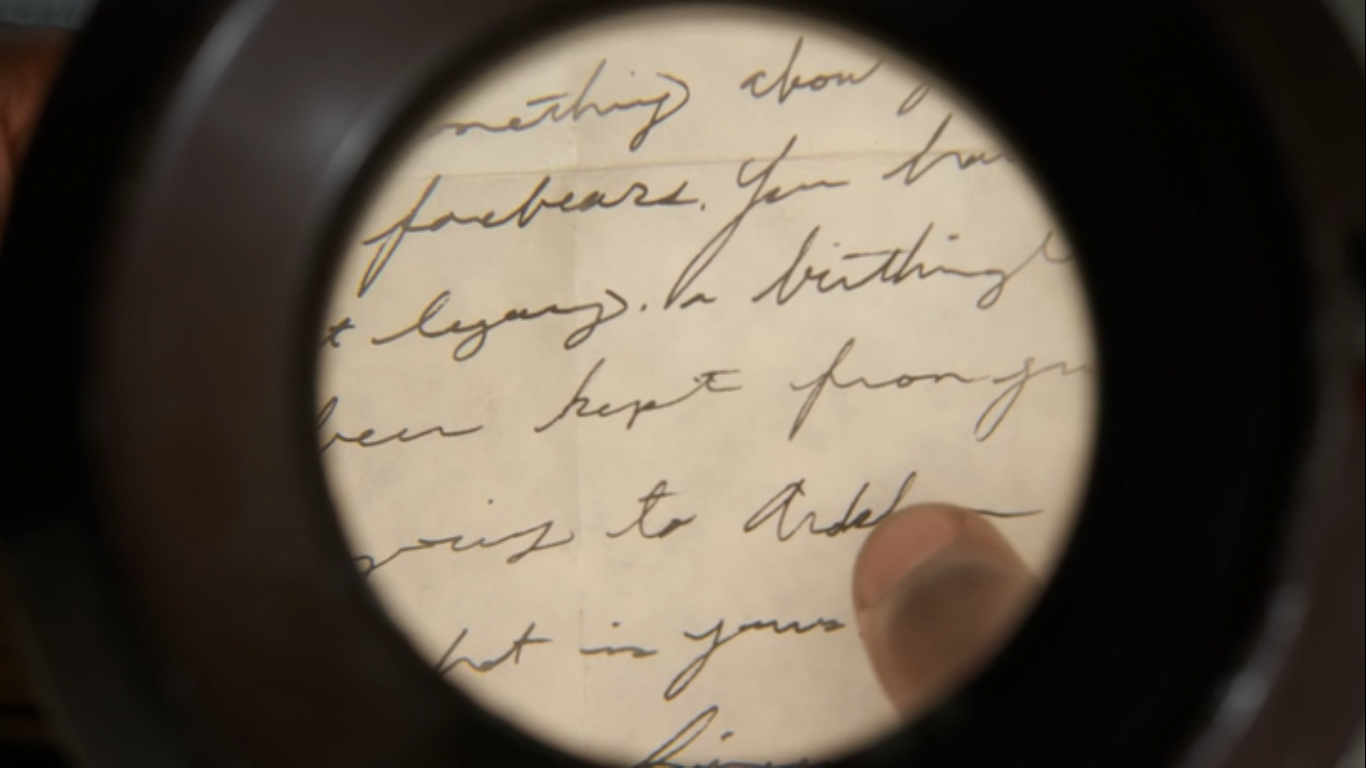 mething abou
forebears. You hav
t legacy. A birthing
been kept from yo
going to Arda
hat is yours